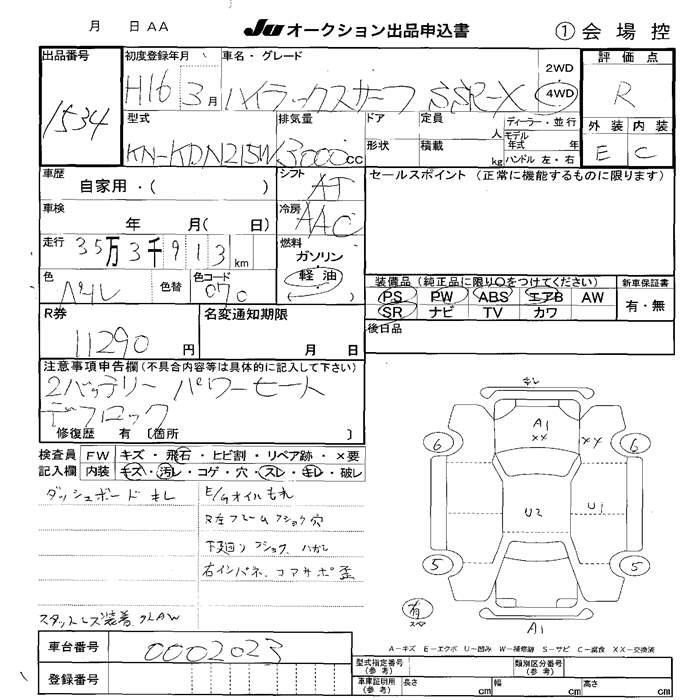 月 日 AA
JU オークション出品申込書
① 会場控
出品番号
1534
初度登録年月
H16 3月
車名・グレード
ハイラックスサーフ SSR-X
2WD
4WD
評価点
R
型式
KN-KDN215W
排気量
3000cc
ドア
形状
定員 人
積載 kg
ディーラー・並行
モデル年式 年
ハンドル 左・右
外装 内装
E C
車歴
自家用・( )
シフト
AT
セールスポイント(正常に機能するものに限ります)
車検
年 月( 日)
冷房
AAC
走行
35万3千913km
燃料
ガソリン
軽油
( )
色
パール
色替
色コード
070
装備品(純正品に限り○をつけてください)
PS PW ABS エアB AW
SR ナビ TV カワ
新車保証書
有・無
R券
11290円
名変通知期限
月 日
後日品
注意事項申告欄(不具合内容等は具体的に記入して下さい)
2バッテリー パワーヒート
デフロック
修復歴 有〔箇所 〕
検査員記入欄
FW キズ・飛石・ヒビ割・リペア跡・×要
内装 キズ・汚レ・コゲ・穴・スレ・キレ・破レ
ダッシュボードキレ
E/gオイルもれ
R左フレームフショク穴
下廻りフショク、ハガレ
右インパネ、コアサポ歪
スタットレス装着
キレ
A1
XX
XX
6
6
U2
U1
5
5
有
スペア
A1
A−キズ E−エクボ U−凹み W−補修跡 S−サビ C−腐食 XX−交換済
車台番号
0002023
登録番号
型式指定番号(参考)
類別区分番号(参考)
車庫証明用(参考)
長さ cm
幅 cm
高さ cm